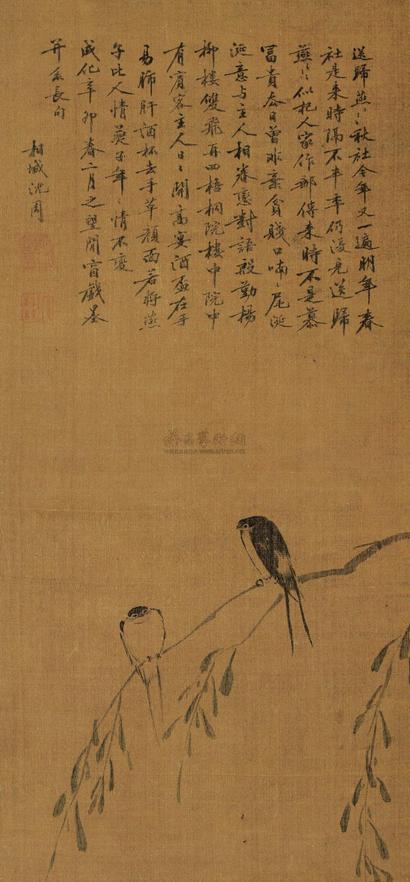 送歸燕〻秋社今年又一遍明年春
社是來時隔不半年仍復見送歸
燕〻似把人家作郵傳來時不是慕
富貴去日曾非棄貧賤口喃〻尾涎
涎意與主人相眷戀對語殷勤楊
柳樓雙飛再四梧桐院樓中院中
有賓客主人日日開高宴酒盃在手
易肺肝酒杯去手革顏面若將燕
子比人情燕子年〻情不變
成化辛卯春二月之望閒窗戲墨
并系長句
相城沈周